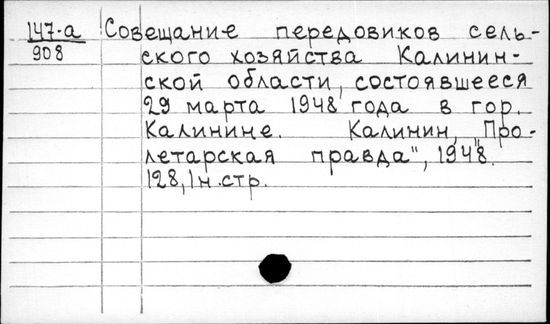 147-а Совещание передовиков сель-
908 ского хозяйства Калинин-
ской области, состоявшееся
29 марта 1948 года в гор.
Калинине. Калинин, „Про-
летарская правда", 1948.
128, 1 н. стр.